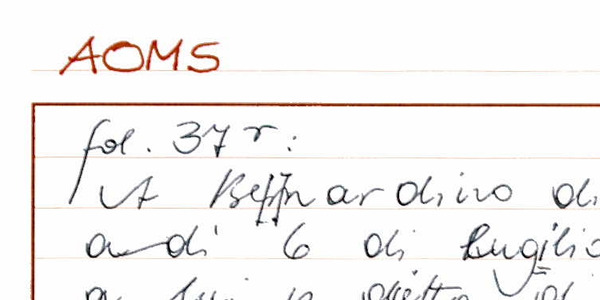 AOMS
fol. 37 r:
A Bernardino di
a di 6 di Luglio
a lui p detto di